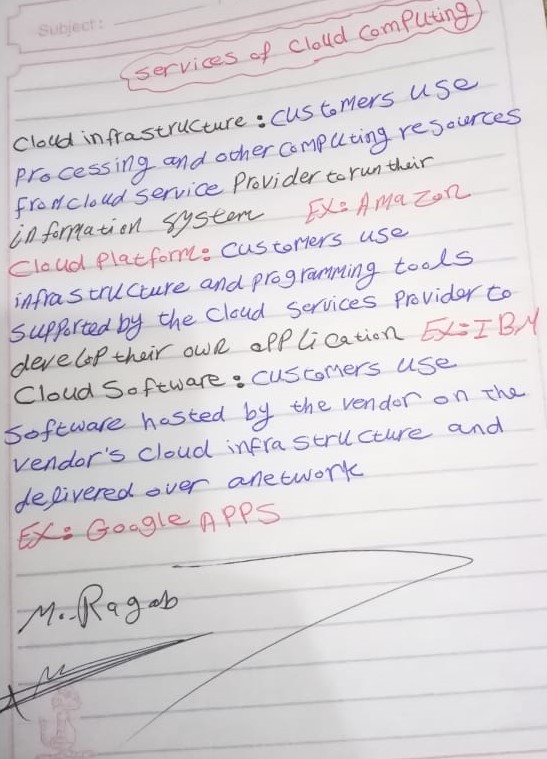 Subject:
Services of Cloud Computing
Cloud infrastructure: customers use
processing and other computing resources
from cloud service Provider to run their
information system EX: Amazon
Cloud Platform: customers use
infrastructure and programming tools
supported by the cloud services Provider to
develop their own application EX: IBM
Cloud Software: customers use
Software hosted by the vendor on the
vendor's cloud infrastructure and
delivered over anetwork
EX: Google APPS
M. Ragab